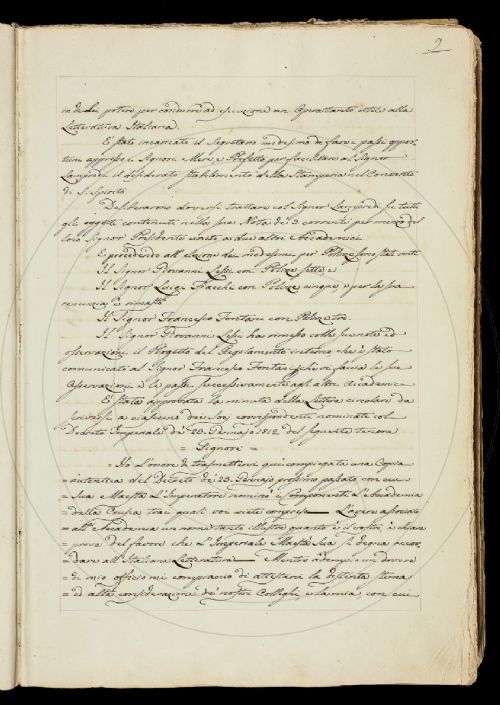 2
potere per condurre ad esecuzione un Opera tanto utile alla
Letteratura Italiana.
È stato incaricato il Segretario medesimo di fare i passi oppor,
tuni appresso i Signori Meri, e Profetto per facilitare al Signor
Lampredi il desiderato stabilimento della Stamperia nel Convento
di S. Spirito
Deliberarono doversi trattare col Signor Lampredi su tutti
gli oggetti contenuti nella sua Nota de' 3 corrente per mezzo del
loro Signor Presidente unito a due altri Accademici
E proceduto all'elezione de' medesimi per Polizze sono stati
Il Signor Giovanni Lessi con Polizze sette e
Il Signor Luigi Fiacchi con Polizze cinque e per la sua
renunzia è rimasto
Il Signor Francesco Fontani con Polizze tre.
Il Signor Giovanni Lessi ha rimesso colle sue note ed
osservazioni il Progetto del Regolamento interno che è stato
comunicato al Signor Francesco Fontani che vi faccia le sue
Osservazioni e lo passi successivamente agl'altri Accademici
È stata approvata la minuta della Lettera circolare da
scriversi a ciascuno dei Soci corrispondenti nominati col
Decreto Imperiale de' 23 Gennajo 1812 del seguente tenore
= Signore =
= Ho l'onore di trasmettervi qui compiegata una Copia
= autentica del Decreto de' 23 Gennajo prossimo passato con cui
= Sua Maestà L'Imperatore nominò i Componenti L'Accademia
= della Crusca tra i quali voi siete compreso — L'avere associato
= all' Accademia un nome tanto illustre quanto è il vostro, è chiara
= prova del favore che L'Imperiale Maestà Sua si degna accor,
= dare all'Italiana Letteratura — Mentre adempio un dovere
= di mio offizio mi compiaccio di attestarvi la distinta stima
= ed alta considerazione de' nostri Colleghi, e la mia con cui